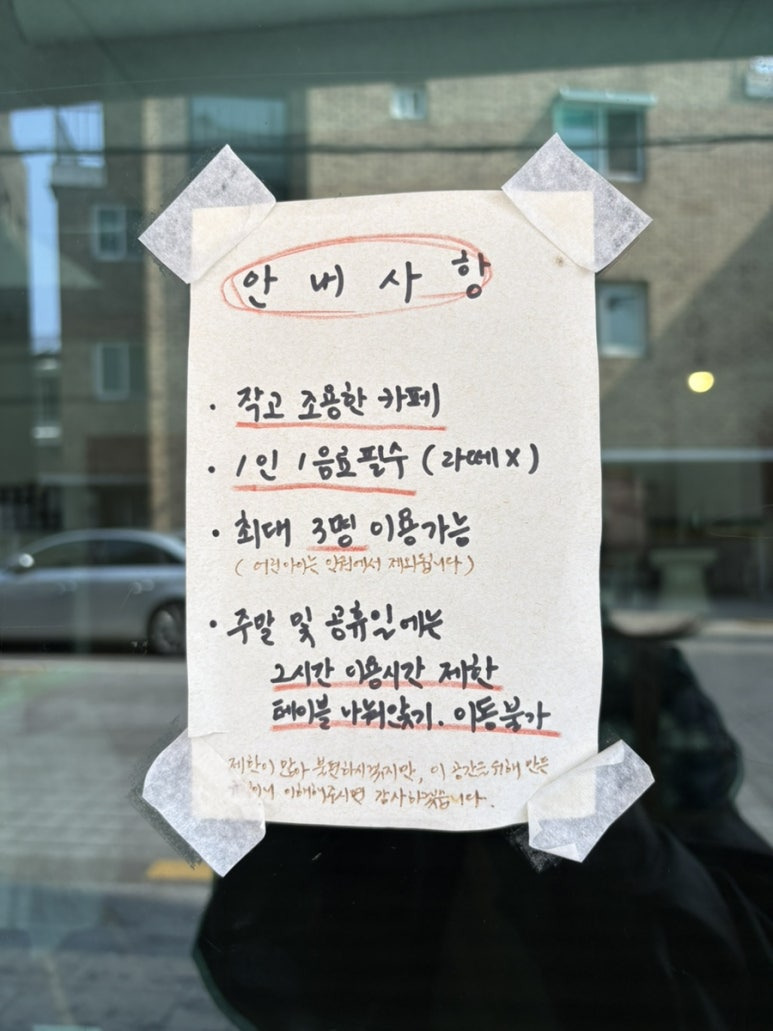 안내사항
· 작고 조용한 카페
· 1인 1음료필수 (라떼X)
· 최대 3명 이용가능
( 어린아이는 인원에서 제외됩니다 )
· 주말 및 공휴일에는
2시간 이용시간 제한
테이블 나눠앉기. 이동불가
제한이 많아 불편하시겠지만, 이 공간을 위해 만든
이해해주시면 감사하겠습니다.